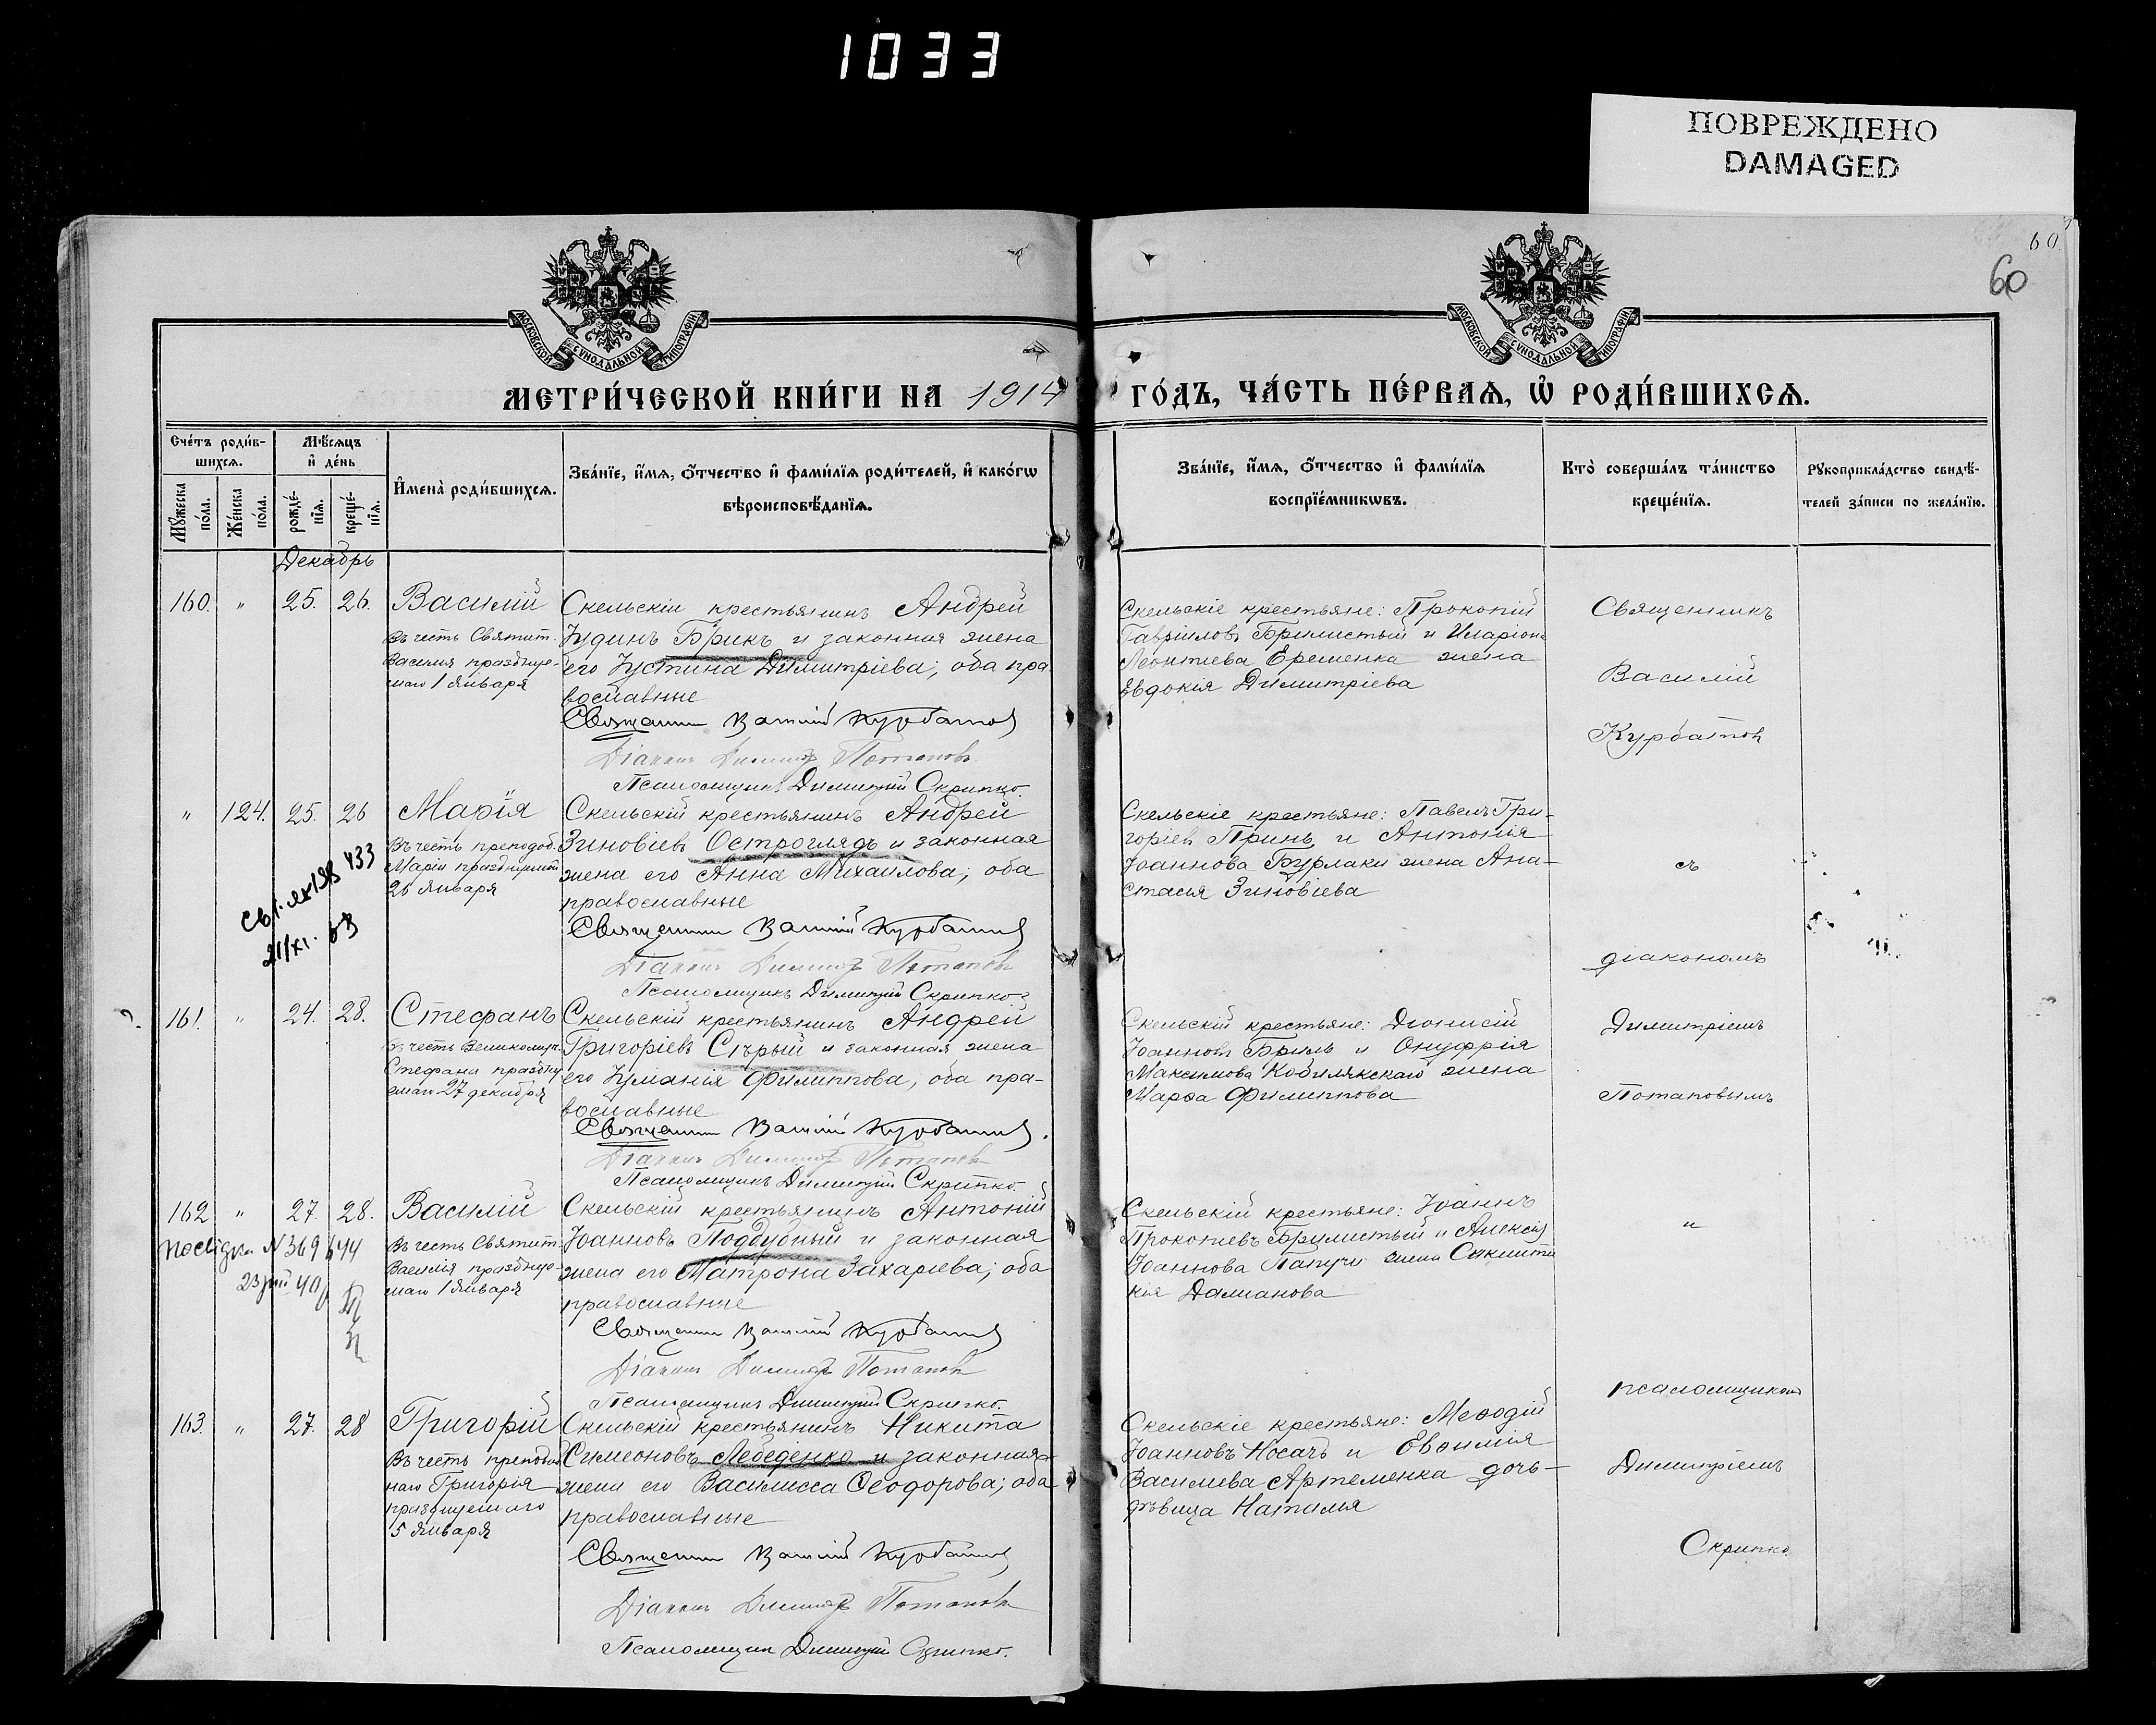 1033
ПОВРЕЖДЕНО
DAMAGED
60.
60
МОСКОВСКОЙ СѴНОДАЛЬНОЙ ТИПОГРАФІИ
МОСКОВСКОЙ СѴНОДАЛЬНОЙ ТИПОГРАФІИ
МЕТРИ́ЧЕСКОЙ КНИ́ГИ НА 1914
ГО́ДЪ, ЧА́СТЬ ПЕ́РВАѦ, Ѡ҆ РОДИ́ВШИХСѦ.
Сче́тъ роди́в-
шихсѧ.
Мꙋ́жеска
по́ла.
Же́нска
по́ла.
Мѣ́сѧцъ
и҆ де́нь
рожде́-
нїѧ.
креще́-
нїѧ.
И҆мена̀ роди́вшихсѧ.
Зва́нїе, и҆́мѧ, ѻ҆́тчество и҆ фами́лїѧ роди́телей, и҆ како́гѡ
вѣроисповѣ́данїѧ.
Зва́нїе, и҆́мѧ, ѻ҆́тчество и҆ фами́лїѧ
воспрїе́мникѡвъ.
Кто̀ соверша́лъ та́инство
креще́нїѧ.
Рꙋкоприкла́дство свидѣ́-
телей за́писи по жела́нїю.
Декабрь
160. " 25. 26. Василій
Въ честь Святит.
Василия праздную-
маго 1 Января
Скельскіи крестьянинъ Андрей
Іудинъ Брикъ и законная жена
его Іустина Димитріева; оба пра
вославные
Священник Василій Курбатов
Діакон Димитр Потапов
Псаломщикъ Димитрій Скрипко.
Скельскіе крестьяне: Прокопій
Гавріиловъ Брилистый и Иларіона
Леонтиева Еременка жена
Евдокія Димитріева
Священникъ
Василій
Курбатов
" 124. 25. 26 Марія
Въ честь преподоб.
Маріи празднуемой
26 Января
433
21/XI.
Скельскій крестьянинъ Андрей
Зиновіев Остроглядъ и законная
жена его Анна Михаилова; оба
православные
Священник Василій Курбатов
Діакон Димитр Потапов
Псаломщикъ Димитрій Скрипко
Скельскіе крестьяне: Павелъ Гри-
горіев Принь и Антонія
Іоаннова Бурлаки жена Ана-
стасия Зиновіева
съ
діакономъ
161. " 24. 28. Стефанъ
Въ честь Великомуч.
Стефана праздну
емаго 27 декабря
Скельскій крестьянинъ Андрей
Григоріевъ Сѣрый и законная жена
его Іуманія Филиппова, оба пра-
вославные
Священник Василій Курбатов.
Діакон Димитр Потапов
Псаломщикъ Димитрій Скрипко.
Скельскій крестьяне: Діонисій
Іоаннов Бриль и Онуфрія
Максимова Кобилякскаго жена
Марѳа Филиппова
Димитріемъ
Потаповымъ
162 " 27. 28. Василій
Въ честь Святит.
Василія праздную-
маго 1 Января
N 369
Скельскій крестьянинъ Антоній
Іоанновъ Поддубный и законная
жена его Матрона Захаріева; оба
православные
Священник Василій Курбатов
Діакон Димитр Потапов
Псаломщикъ Димитрій Скрипко.
Скельскій крестьяне: Іоаннъ
Прокопиевъ Брилистый и Алексія
Іоаннова Папучи жена
Дамианова
"
псаломщиком
163. " 27. 28 Григорій
Въ честь преподоб
наго Григорія
празднуемаго
5 Января
Скельскій крестьянинъ Никита
Симеоновъ Лебеденко и законная
жена его Василисса Ѳеодорова; оба
православные
Священник Василій Курбатов
Діакон Димитр Потапов
Псаломщик Димитрій Скрипко.
Скельскіе крестьяне: Меѳодій
Іоанновъ Носачъ и Евѳимія
Василиева Артеменка дочь-
дѣвица Наталия
Димитріемъ
Скрипко.